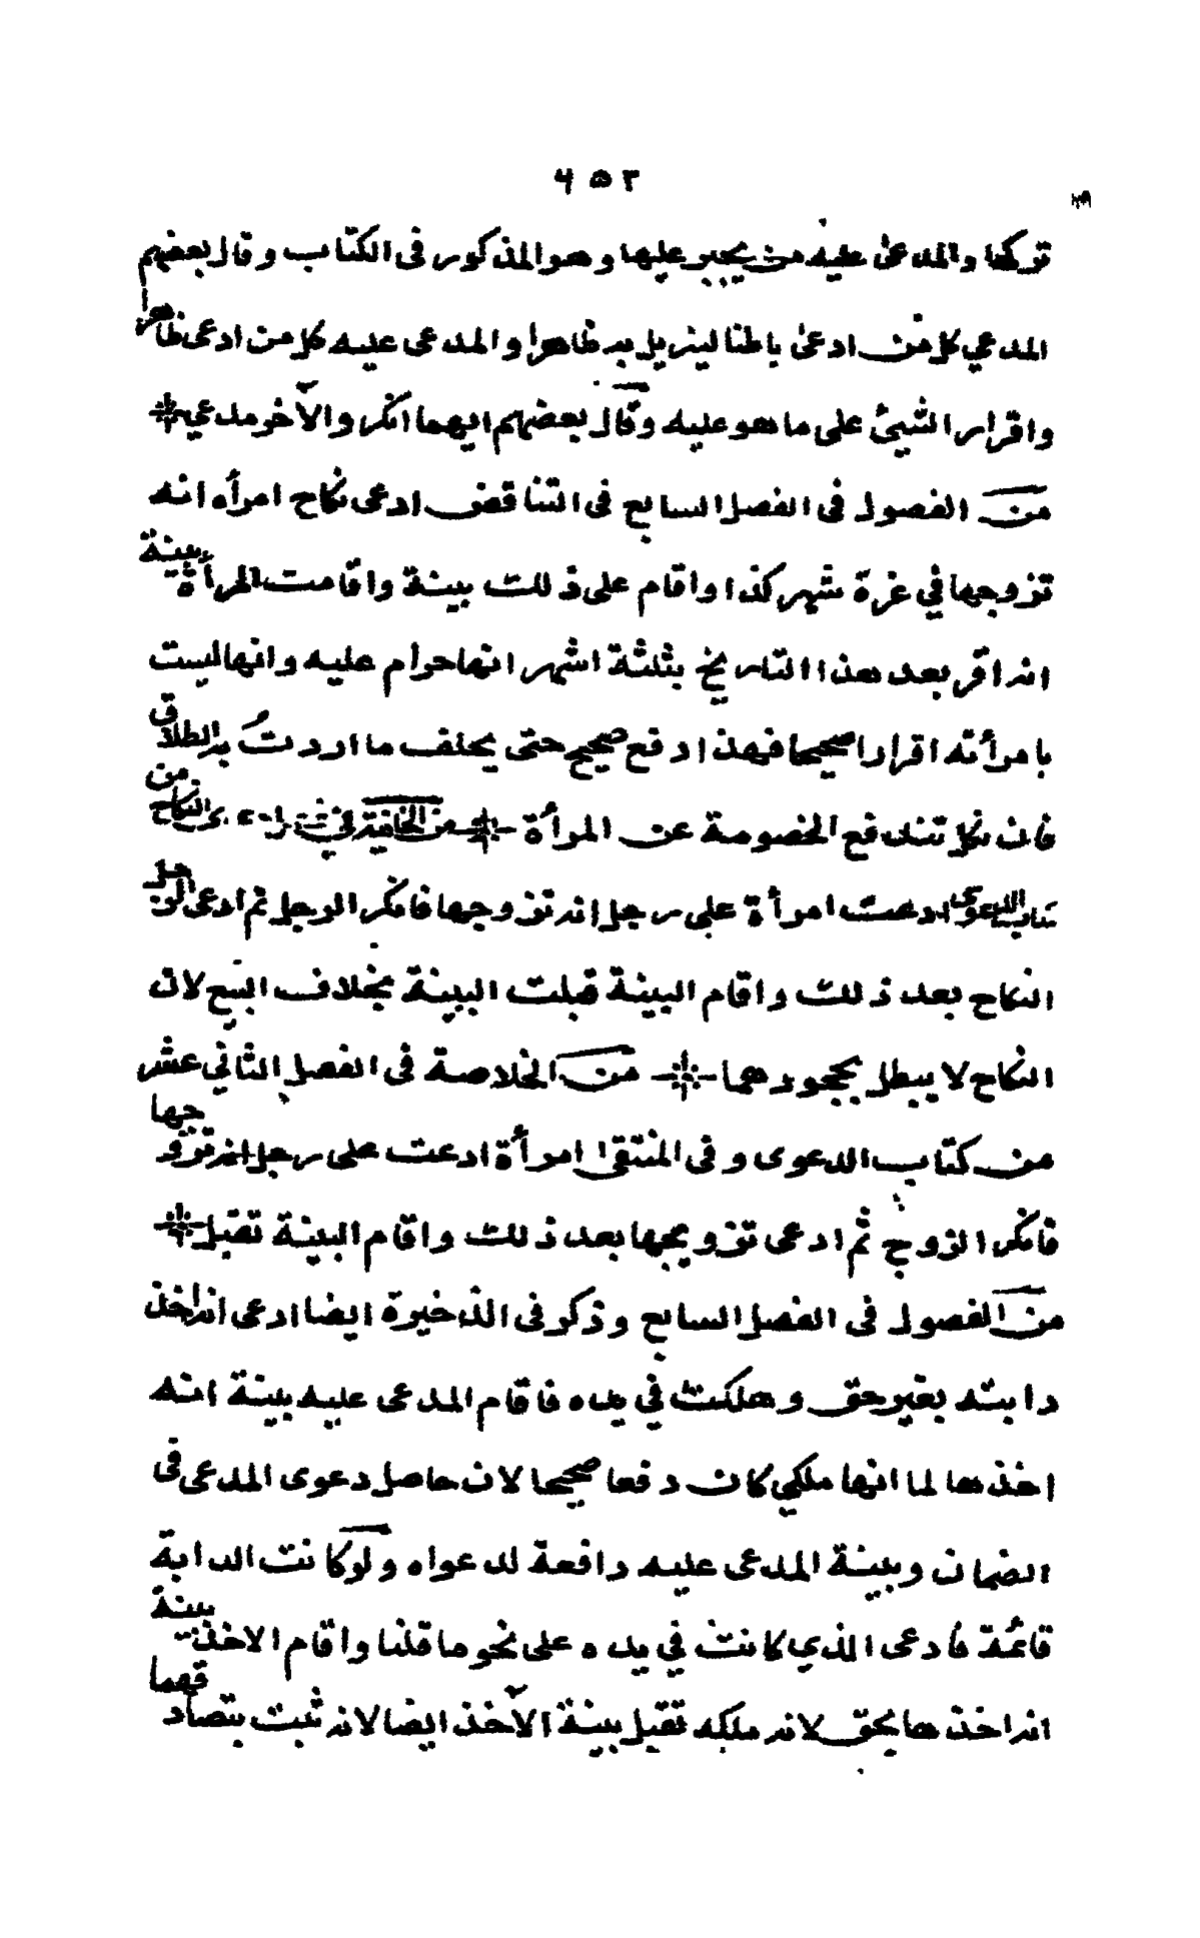 ٤٥٢
تركها والمدعى عليه من يجبر عليها وهو المذكور فى الكتاب وقال بعضهم
المدعي كل من ادعى باطنا ليزيل به ظاهرا والمدعى عليه كل من ادعى ظاهرا
واقرار الشيئ على ما هو عليه وقال بعضهم ايهما انكر والآخر مدعي
من الفصول فى الفصل السابع فى التناقض ادعى نكاح امرأه انه
تزوجها في غرة شهر كذا واقام على ذلك بينة واقامت المرأة بينة
انه اقر بعد هذا التاريخ بثلثة اشهر انها حرام عليه وانها ليست
بامرأته اقرارا صحيحا فهذا دفع صحيح حتى يحلف ما اردتُ به الطلاق
فان نكل تندفع الخصومة عن المرأة من الخانية في دعوى النكاح من
كتاب الدعوى ادعت امرأة على رجل انه تزوجها فانكر الرجل ثم ادعى الرجل
النكاح بعد ذلك واقام البينة قبلت البينة بخلاف البيع لان
النكاح لا يبطل بجحودهما من الخلاصة فى الفصل الثاني عشر
من كتاب الدعوى وفى المنتقى امرأة ادعت على رجل انه تزوجها
فانكر الزوج ثم ادعى تزويجها بعد ذلك واقام البينة تقبل
من الفصول فى الفصل السابع وذكر فى الذخيرة ايضا ادعى انه اخذ
دابته بغير حق وهلكت في يده فاقام المدعى عليه بينة انه
اخذها لما انها ملكي كان دفعا صحيحا لان حاصل دعوى المدعى فى
الضمان وبينة المدعى عليه دافعة لدعواه ولو كانت الدابة
قائمة فادعى الذي كانت في يده على نحو ما قلنا واقام الاخذ بينة
انه اخذها بحق لانه ملكه تقبل بينة الآخذ ايضا لانه ثبت بتصادقهما